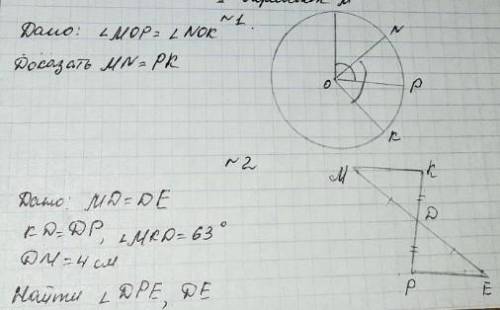 ~1.
Дано: ∠MOP = ∠NOK
Доказать MN = PK
N
O
P
K
~2
Дано: MD = DE
KD = DP, ∠MKD = 63°
DM = 4 см
Найти ∠DPE, DE
M
K
D
P
E